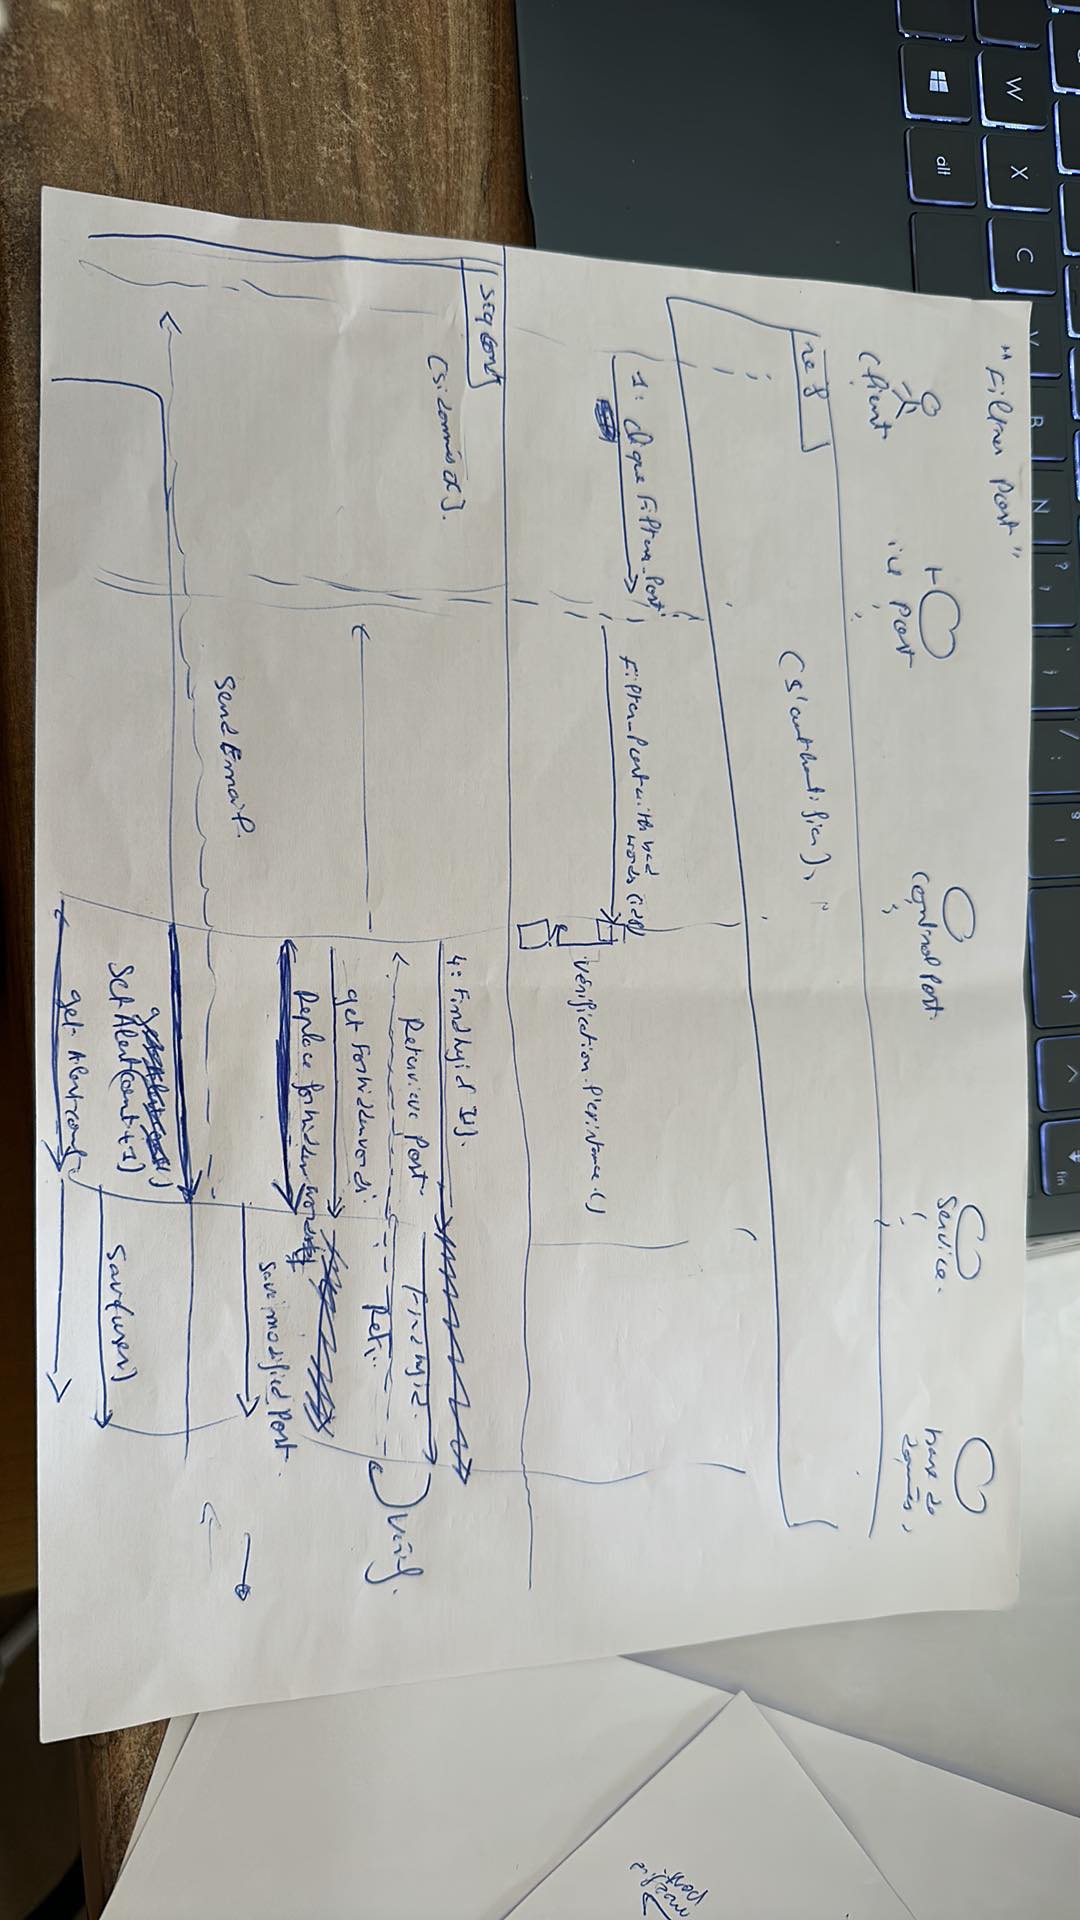 W X C V B N ? ; . : / § !
alt
fin
"Filtrer Post"
Client
Post
Control Post
Service
base de
données
ref
(s'authentifier)
1: clique Filtrer_Post
Filter_Post with bad
words (id)
Vérification
seq
4: Findbyid
Retervieve Post
Findbyid
Retr..
Verif.
get Forbiddenwords
Replace forbidden words
save modified Post
Send Email
Set Alert(count+1)
Save(user)
get Alertcount